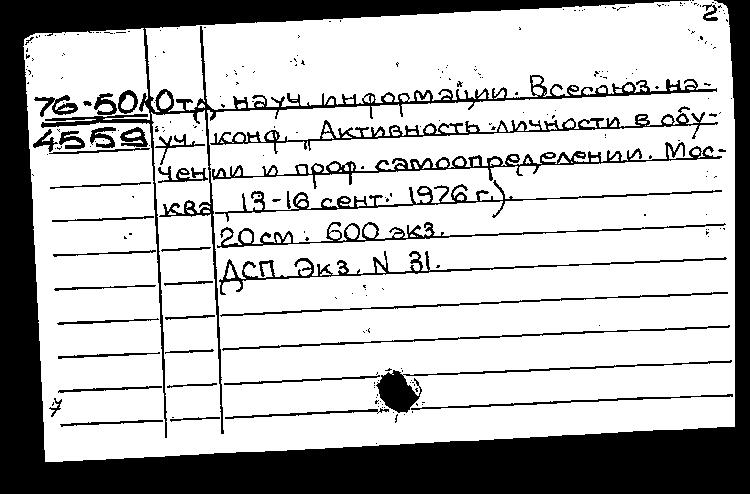 2
76-50к Отд. науч. информации. Всесоюз. на-
4559 уч. конф. „Активность личности в обу-
чении и проф. самоопределении. Мос-
ква, 13-16 сент. 1976 г.).
20 см. 600 экз.
ДСП. Экз. N 31.
7